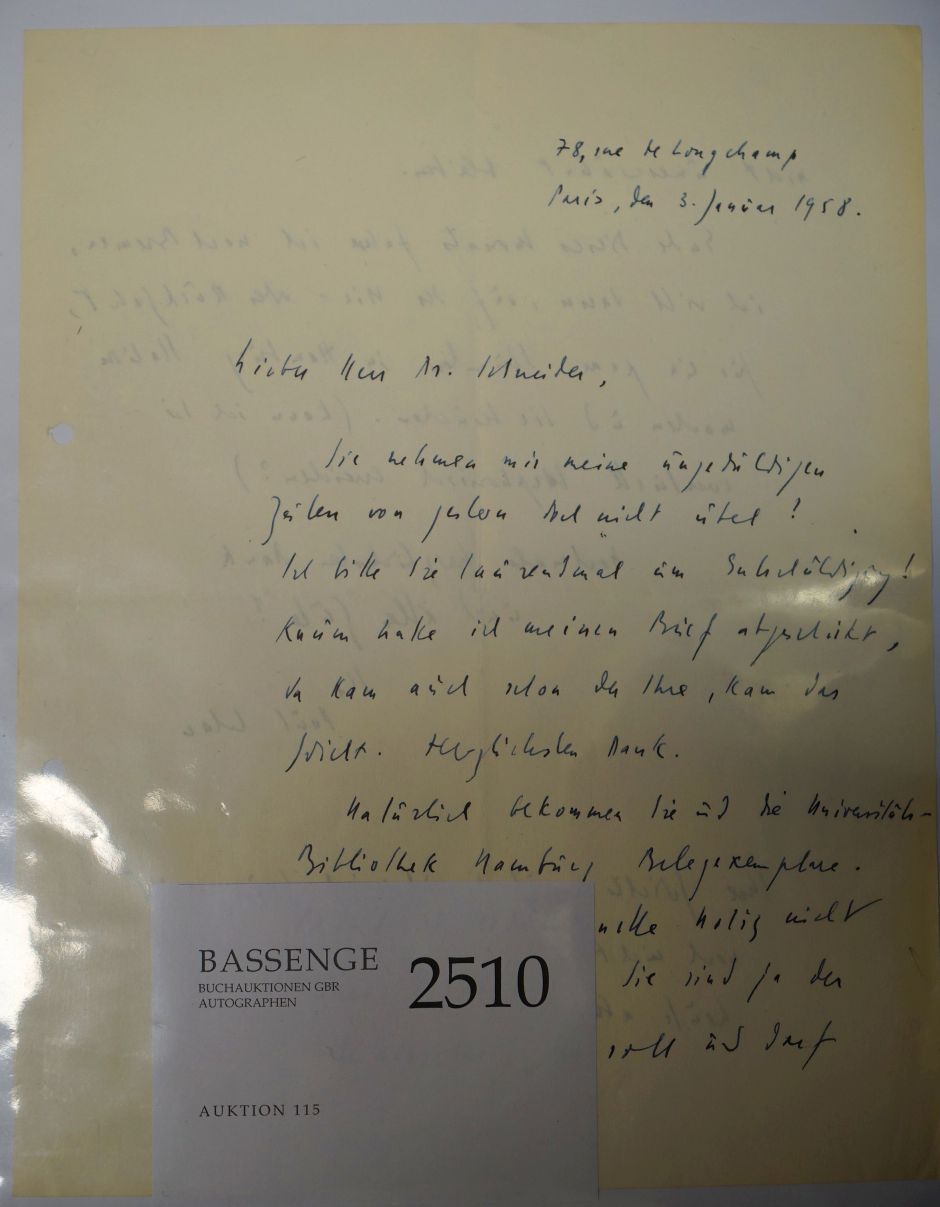 78, rue de Longchamp
Paris, den 3. Januar 1958.
Lieber Herr Dr. Schneider,
Sie nehmen mir meine ungeduldigen
Zeilen von gestern doch nicht übel!
Ich bitte Sie tausendmal um Entschuldigung!
Kaum hatte ich meinen Brief abgeschickt,
da kam auch schon der Ihre, kam das
Gedicht. Herzlichsten Dank.
Natürlich bekommen Sie und die Universitäts-
Bibliothek Hamburg Belegexemplare.
Notiz nicht
Sie sind ja der
soll und darf
BASSENGE
BUCHAUKTIONEN GBR
AUTOGRAPHEN
2510
AUKTION 115